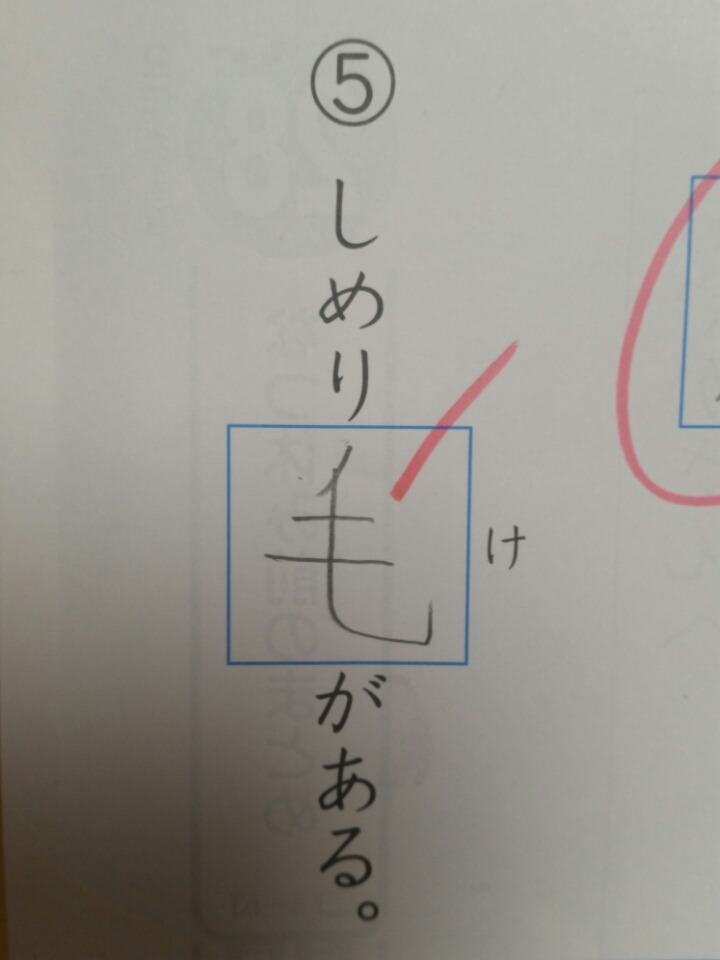 ⑤しめり毛がある。
け